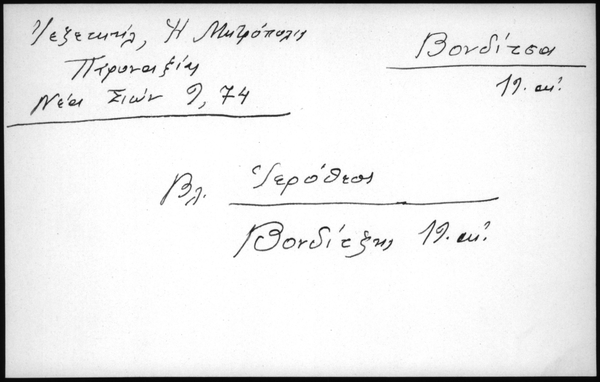 Ἰεζεκιήλ, Ἡ Μητρόπολις
Νέα Σιών 9, 74
Βονδίτσα
19. αἰ.
Βλ. Ἱερόθεος
Βονδίτζης 19. αἰ.